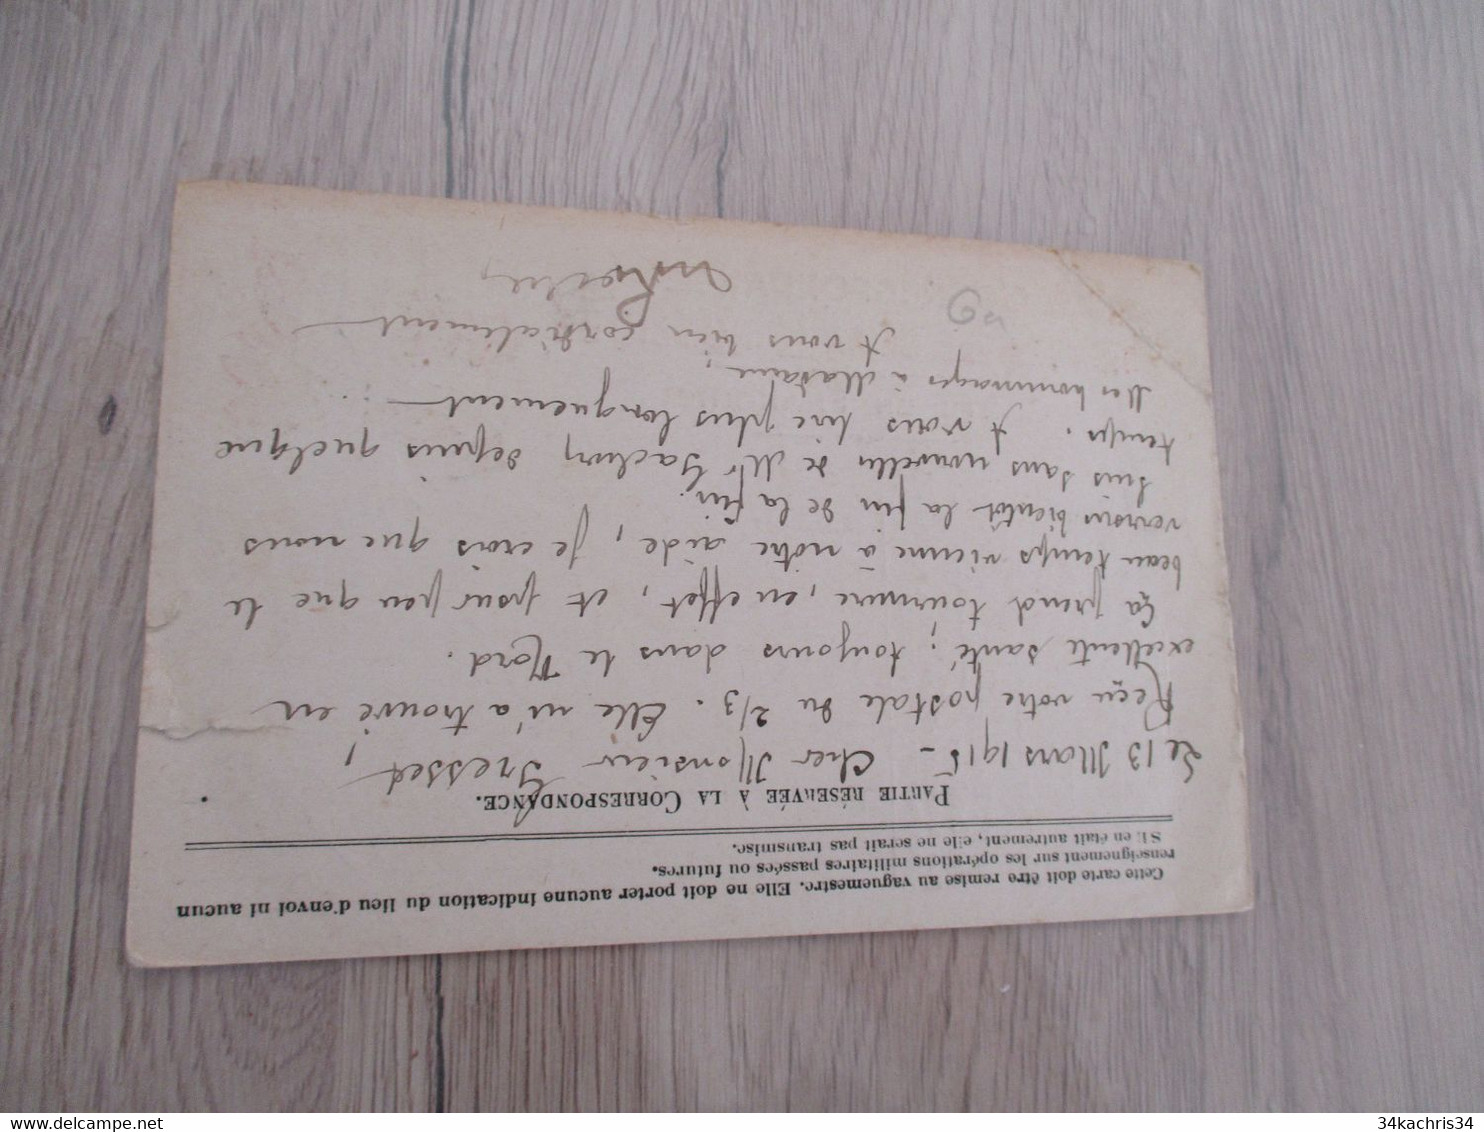 Cette carte doit être remise au vaguemestre. Elle ne doit porter aucune indication du lieu d'envoi ni aucun
renseignement sur les opérations militaires passées ou futures.
S'il en était autrement, elle ne serait pas transmise.
PARTIE RÉSERVÉE À LA CORRESPONDANCE.
Le 13 Mars 1915 - Cher Monsieur Gresset,
Reçu votre postale du 2/3. Elle m'a trouvé en
excellente santé ; toujours dans le Nord.
Ça prend tournure, en effet, et pour peu que le
beau temps vienne à notre aide, je crois que nous
verrons bientôt la fin de la fin.
Suis sans nouvelles de Mr depuis quelque
temps. A vous lire plus longuement
Mes hommages à Madame,
A vous bien cordialement
34kachris34
delcampe.net